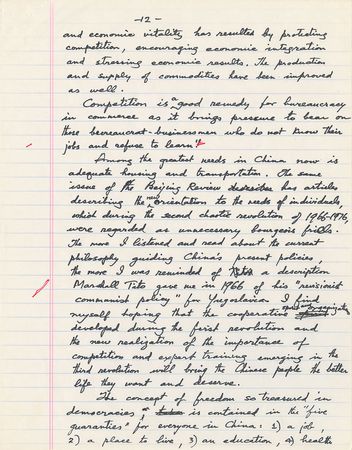 -12-
and economic vitality has resulted by protecting
competition, encouraging economic integration
and stressing economic results. The production
and supply of commodities have been improved
as well.
Competition is a good remedy for bureaucracy
in commerce as it brings pressure to bear on
those bereaucrat-businessmen who do not know their
jobs and refuse to learn."
Among the greatest needs in China now is
adequate housing and transportation. The same
issue of the Beijing Review has articles
describing the new orientation to the needs of individuals,
which during the second chaotic revolution of 1966-1976,
were regarded as unnecessary bourgeois frills.
The more I listened and read about the current
philosophy guiding China's present policies,
the more I was reminded of a description
Marshall Tito gave me in 1966 of his "revisionist
communist policy" for Yugoslavia. I find
myself hoping that the cooperative spirit
developed during the first revolution and
the new realization of the importance of
competition and expert training emerging in the
third revolution will bring the Chinese people the better
life they want and deserve.
The concept of freedom so treasured in
democracies, is contained in the "five
guaranties" for everyone in China: 1) a job,
2) a place to live, 3) an education, 4) health